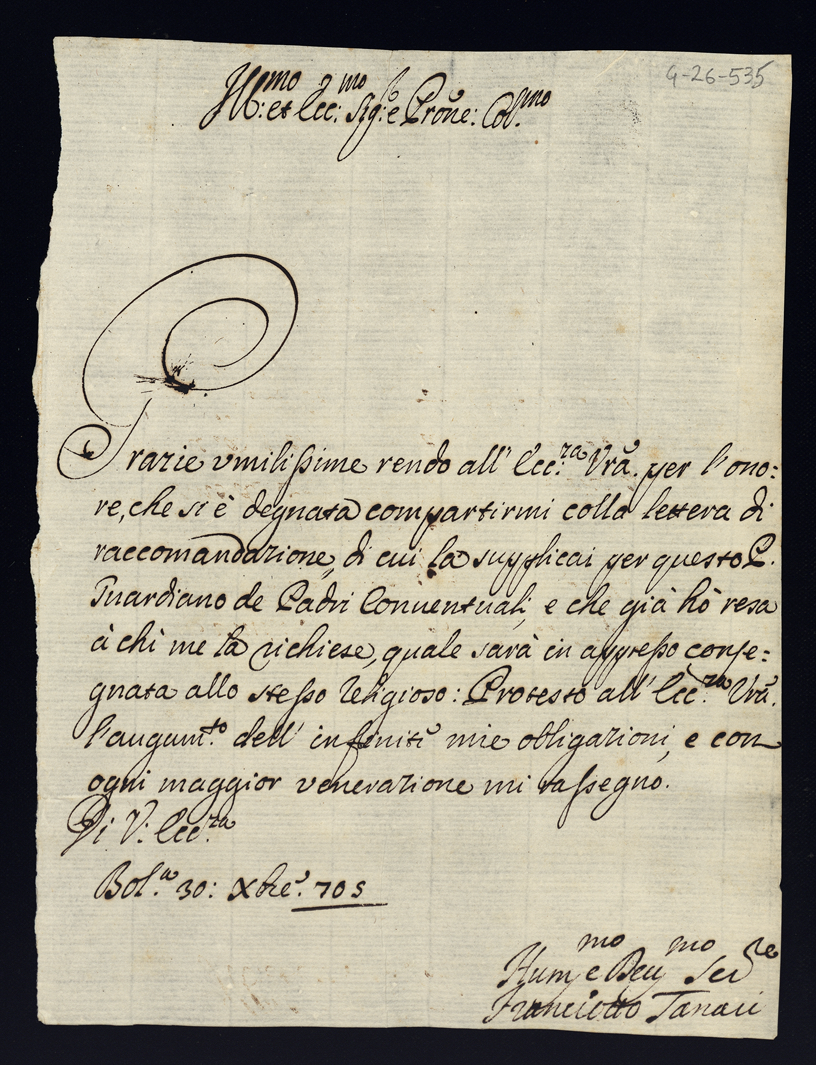 4-26-535
Ill:mo et Ecc:mo Sig:e e Prone: Col:mo
Grazie umilissime rendo all' Ecc:za Vra. per l'ono:
re, che si è degnata compartirmi colla lettera di
raccomandazione, di cui la supplicai per questo P.
Guardiano de Padri Conventuali, e che già hò resa
à chi me la richiese, quale sarà in appresso conse:
gnata allo stesso religioso: Protesto all' Ecc:za Vra.
l'augum:to dell' infinite mie obligazioni, e con
ogni maggior venerazione mi rassegno.
Di V: Ecc:za
Bol:a 30: Xbre. 705
Hum:mo e Deu:mo Ser:re
Francesco Tanari